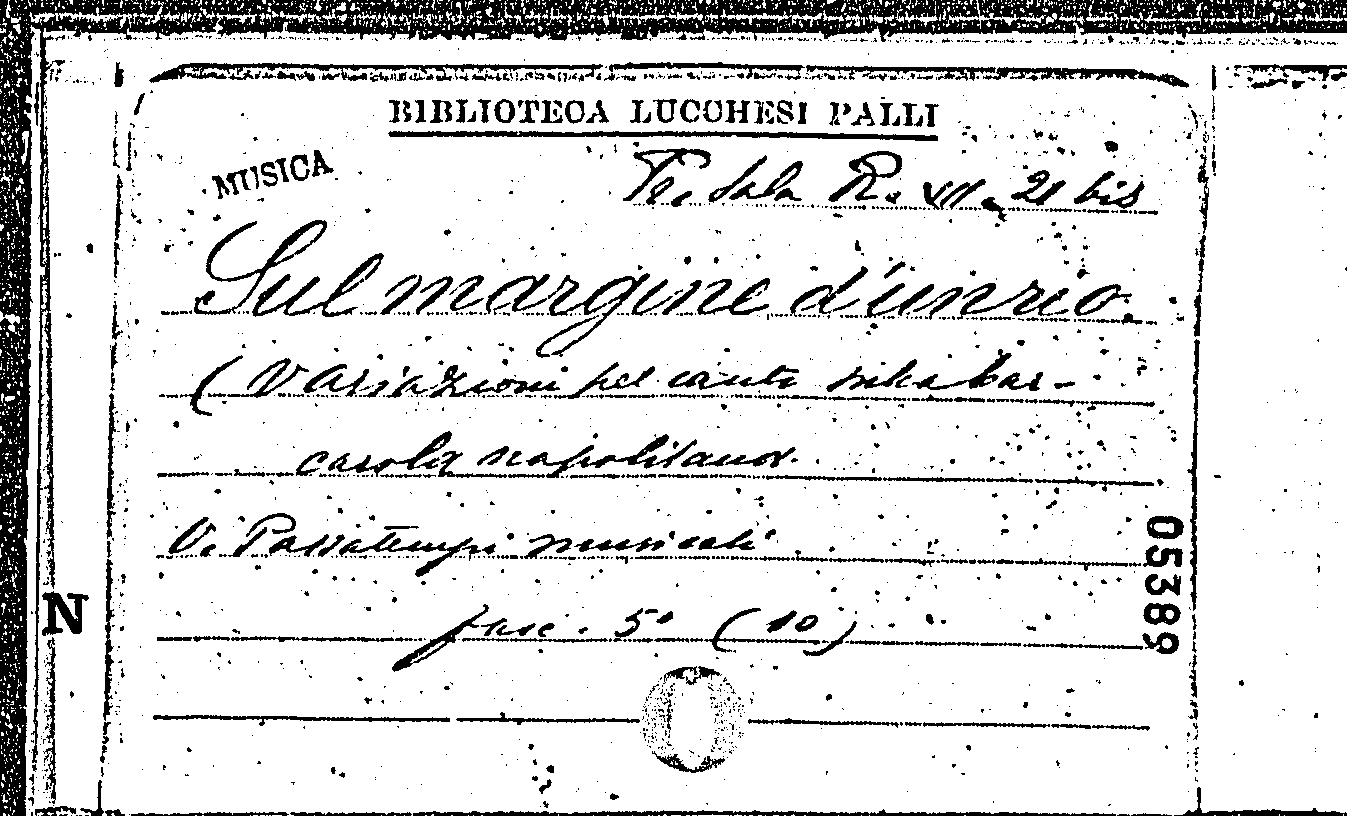 BIBLIOTECA LUCCHESI PALLI
MUSICA
Pr. Sala R. VII. 21 bis
Sul margine d'un rio.
(Variazioni pel canto sulla bar-
carola napolitana.
V. Passatempi musicali
fasc. 5° (10)
05389
N